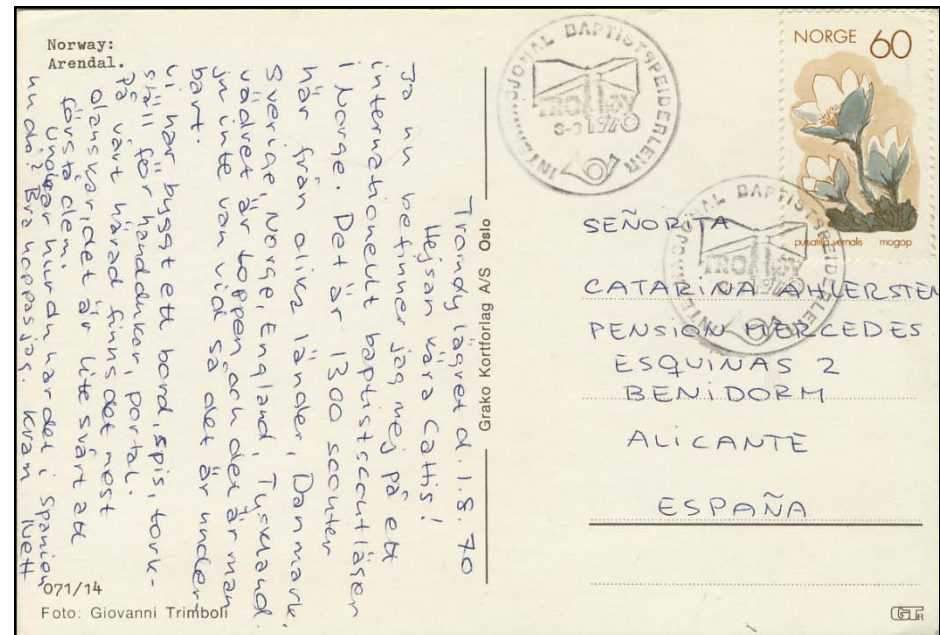 Norway:
Arendal.
Tromöy lägret d. 1.8.70
Hejsan kära Cattis!
Ja nu befinner jag mej på ett
internationellt baptistscoutläger
i Norge. Det är 1300 scouter
här från olika länder, Danmark,
Sverige, Norge, England, Tyskland.
Vädret är toppen, och det är man
ju inte van vid så det är under
bart.
Vi har byggt ett bord, spis, tork-
ställ för handdukar, portal.
På vårt härad finns det mest
danskar, det är lite svårt att
förstå dem.
Undrar hur du har det i Spanien
nu då? Bra hoppas jag. Kram
071/14
Foto: Giovanni Trimboli
Grako Kortforlag A/S Oslo
INTERNASJONAL BAPTISTSPEIDERLEIR
TROMØY
1970
NORGE 60
pulsatilla vernalis mogop
INTERNASJONAL BAPTISTSPEIDERLEIR
TROMØY
1970
SEÑORITA
CATARINA AHLERSTEN
PENSION MERCEDES
ESQUINAS 2
BENIDORM
ALICANTE
ESPAÑA